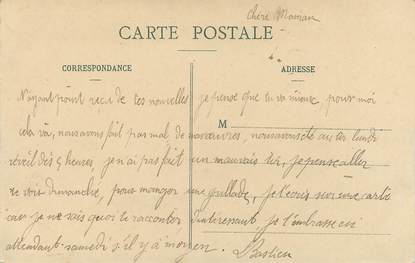 Chère Maman
CARTE POSTALE
CORRESPONDANCE
ADRESSE
M
N'ayant point reçu de tes nouvelles je pense que tu va mieux pour moi
cela va, nous avons fait pas mal de manœuvres, nous avons été au tir lundi
réveil dès 4 heures je n'ai pas fait un mauvais tir, je pense aller
te voir dimanche, pour manger une grillade, je t'écris sur une carte
car je ne sais quoi te raconter d'intéressant je t'embrasse en
attendant samedi s'il y a moyen. Bastien